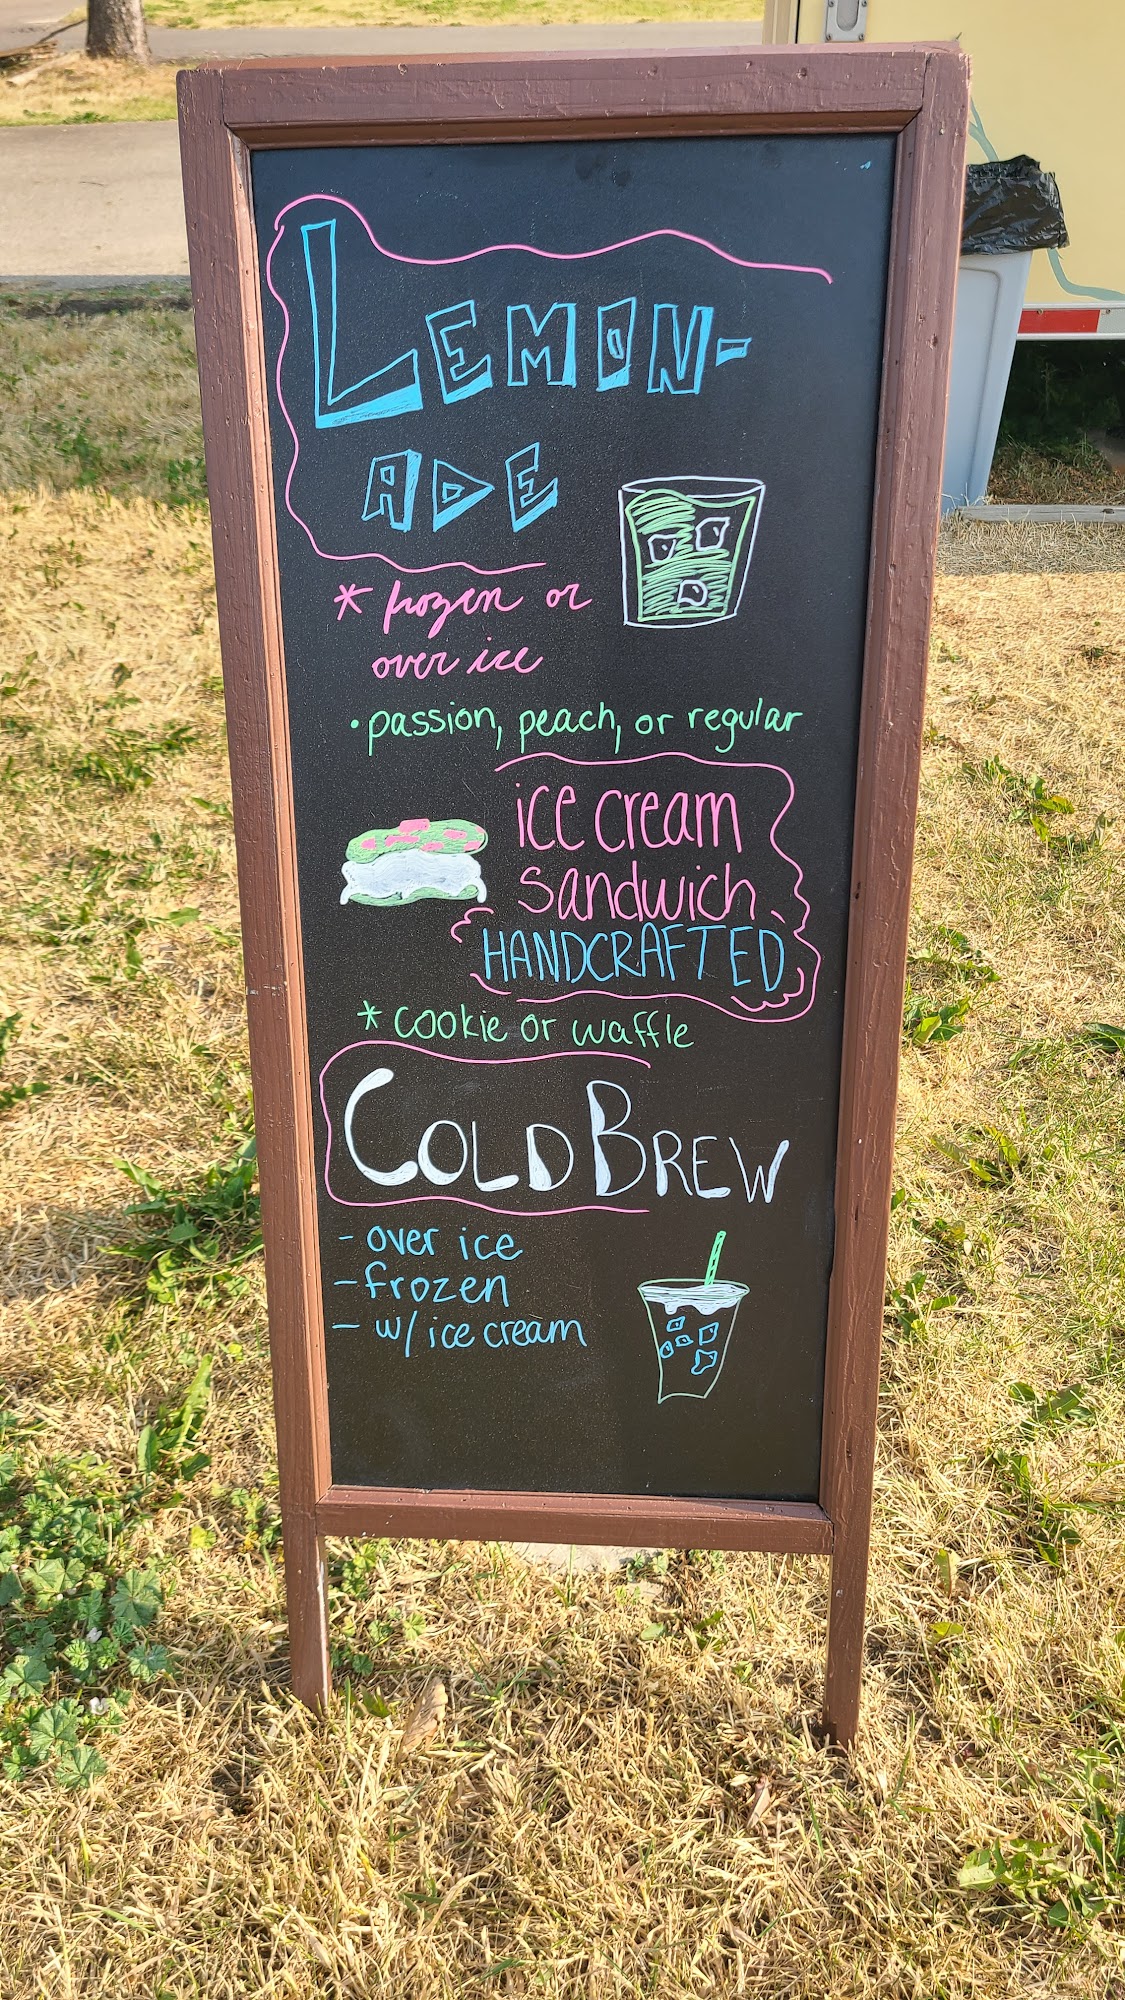 LEMON-
ADE
* frozen or
over ice
• passion, peach, or regular
ice cream
sandwich
HANDCRAFTED
* cookie or waffle
COLD BREW
- over ice
- frozen
- w/ ice cream